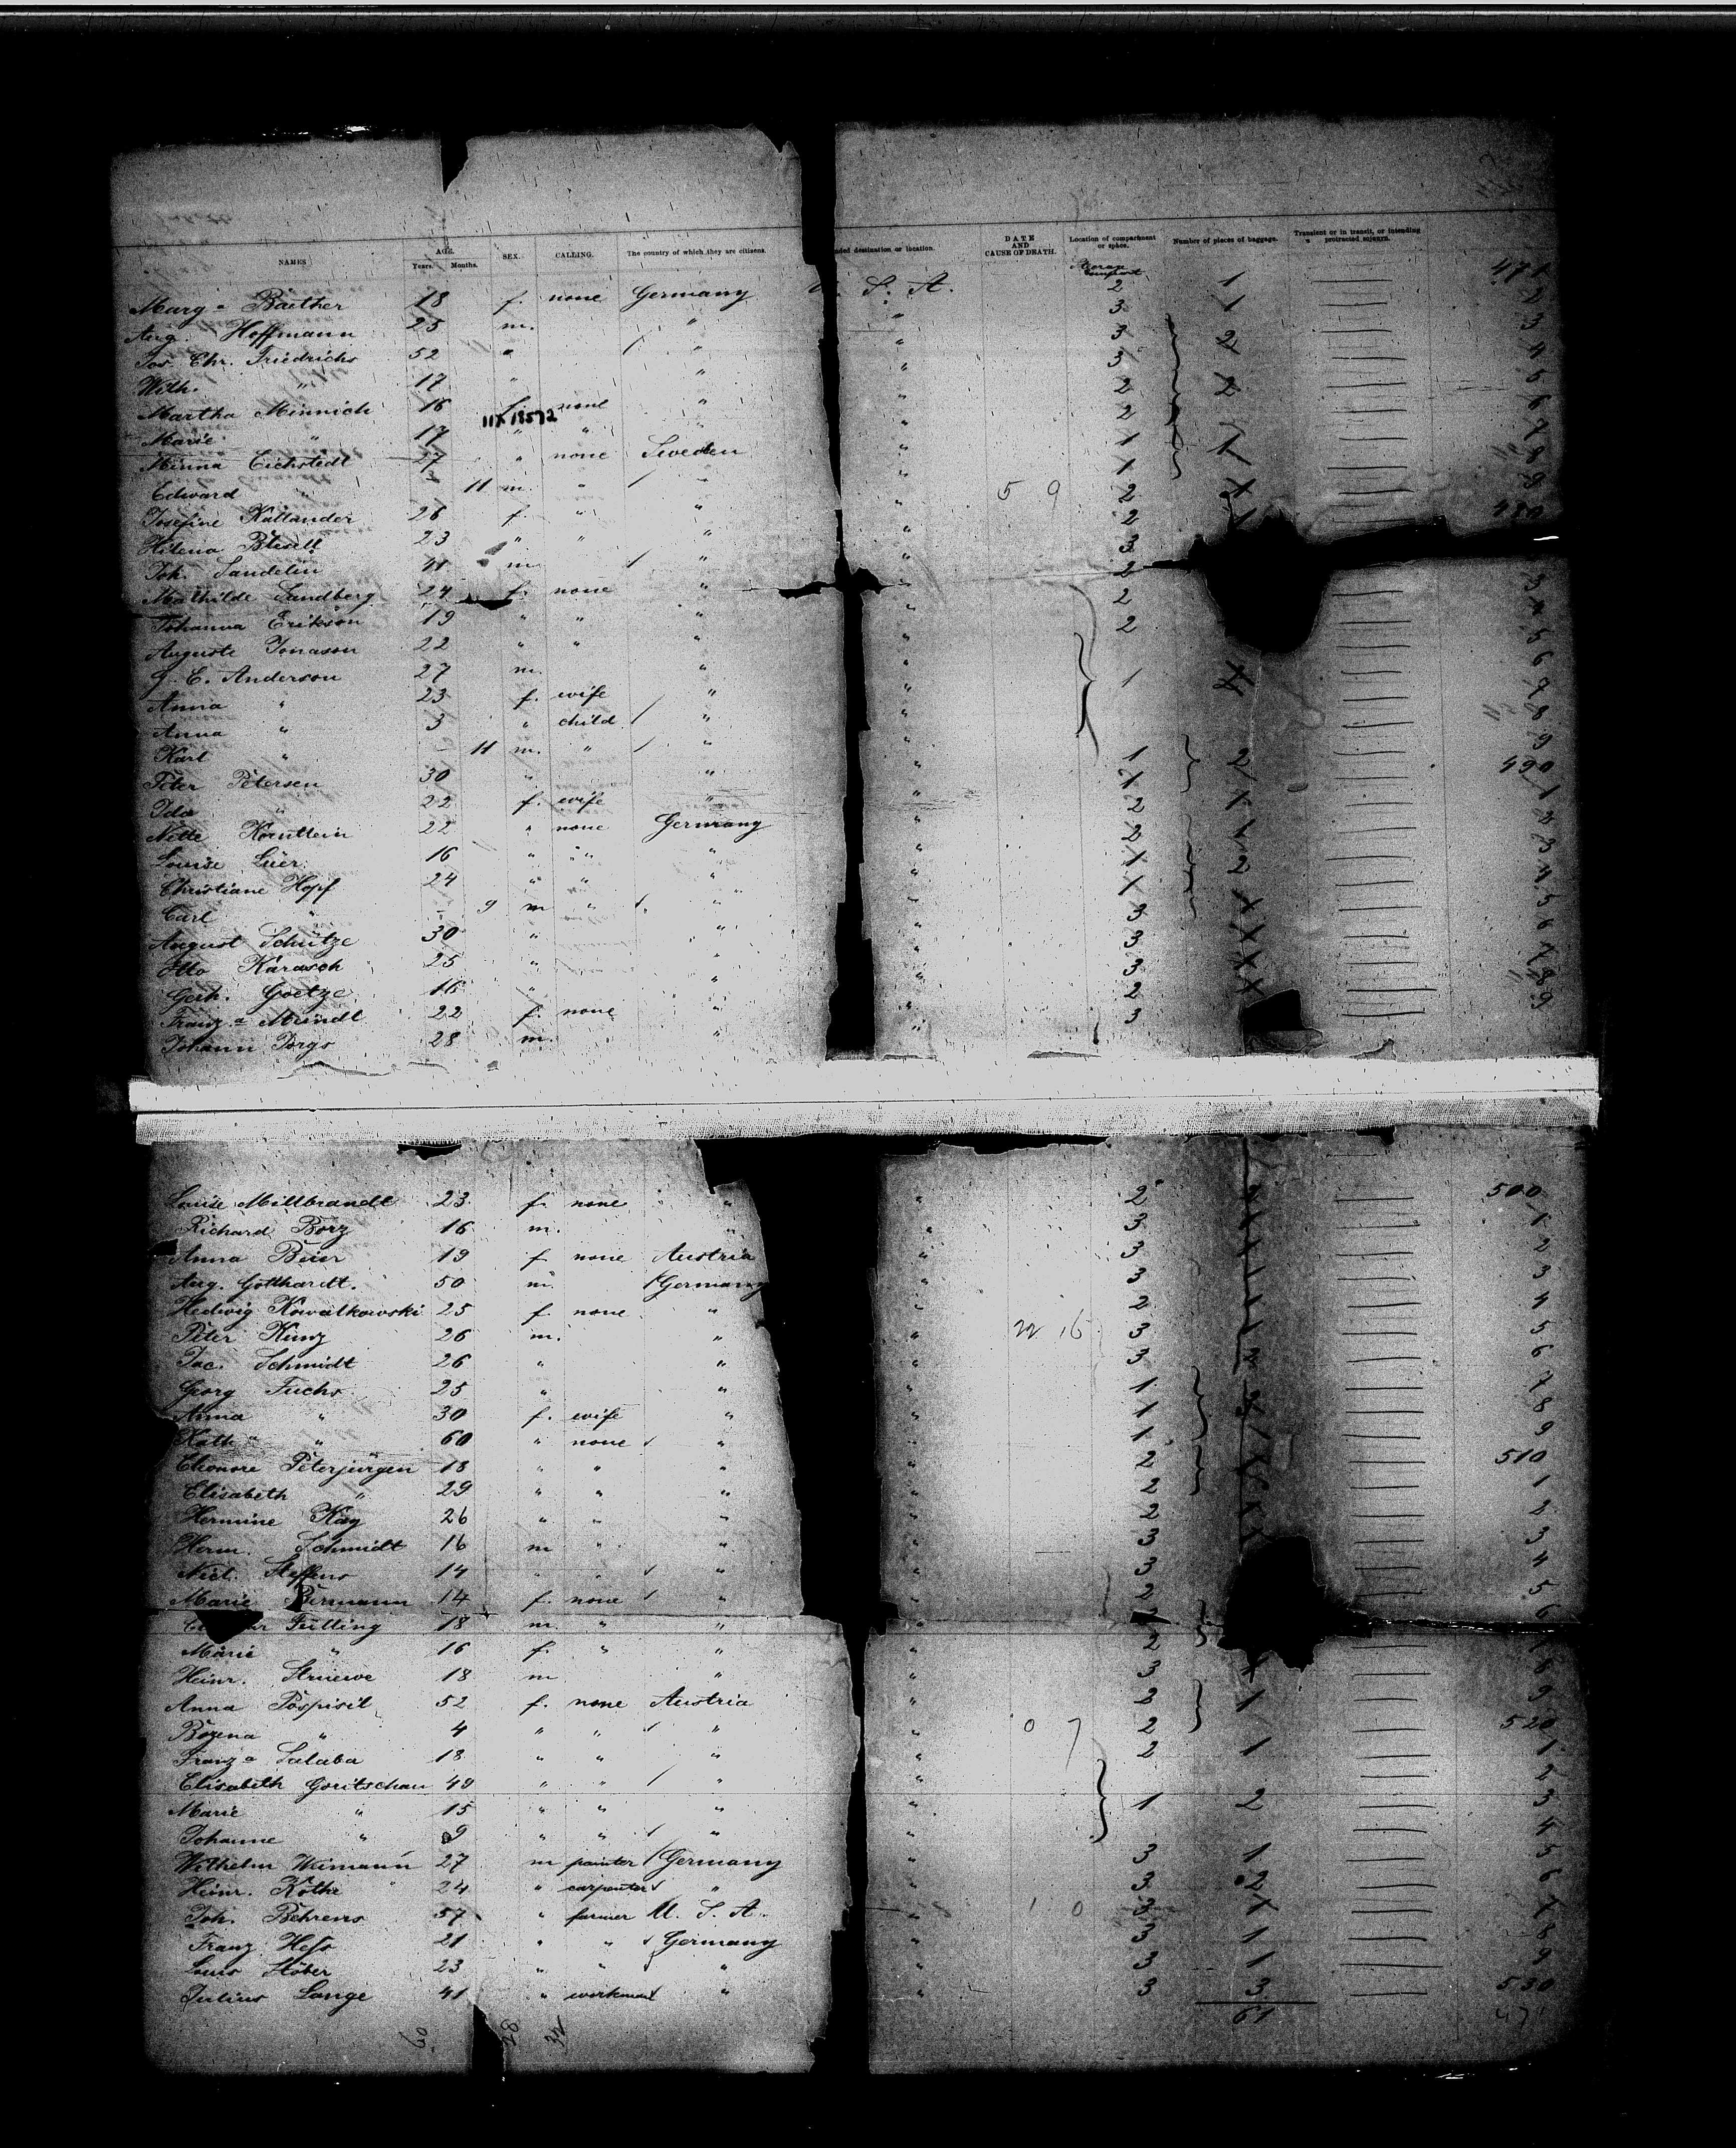 NAMES AGE. Years. Months. SEX. CALLING. The country of which they are citizens. ded destination or location. DATE AND CAUSE OF DEATH. Location of compartment or space. Number of pieces of baggage. Transient or in transit, or intending protracted sojourn.
Marg a Baether 18 f. none Germany S. A. 2 1 471
Aug. Hoffmann 25 m. " " 3 1 2
Jos. Chr. Friedrichs 52 " " " 3 2 3
Wilh. " 17 " " " 3 4
Martha Minnich 16 f. none " " 2 2 5
11X18572
Marie " 17 " " " " 2 6
Minna Eichstedt 27 " none Sweden " 1 1 7
Edward " 11 m. " " " 1 8
Josefine Kallander 26 f. " " " 5 9 2 9
Hilena 23 " " " " 2 480
Joh. Sandelin 41 m " "
Mathilde Sandberg 24 f. none " " 2
Johanna Erikson 19 " " " " 2 3
Auguste Jonason 22 " " " " 2 4
G. E. Anderson 27 m. " " 5
Anna " 23 f. wife " " 1 4 6
Anna " 3 " child " " 7
Karl " 11 m. " " " 8
Peter Petersen 30 " " " 1 2 9
Ida " 22 f. wife " " 1 490
Nette Kornllein 22 " none Germany " 2 1 1
Louise Lüer 16 " " " " 2 1 2
Christiane Hopf 24 " " " " 1 2 3
Carl " 9 m " " " 1 4
August Schütze 30 " " " 3 X 5
Otto Karasch 25 " " " 3 X 6
Gerh. Goetze 16 " " " 3 X 7
Franz a Mundt 22 f. none " " 2 X 8
Johann Borgs 28 m. " " 3 9
Louise Millbrandt 23 f. none " " 2 500
Richard Borz 16 m. " " 3 1
Anna Beier 19 f. none Austria " 3 2
Aug. Gotthardt. 50 m. Germany " 3 3
Hedwig Kowalkowski 25 f. none " " 2 4
Peter Kunz 26 m. " " 3 5
Jac. Schmidt 26 " " " 3 6
Georg Fuchs 25 " " " 1 7
Anna " 30 f. wife " " 1 8
Kath " 60 " none " " 1 9
Eleonore Peterjürgen 18 " " " " 2 510
Elisabeth " 29 " " " " 2 1
Hermine Kay 26 " " " " 2 2
Herm. Schmidt 16 m " " " 3 3
Nicl. Steffens 14 " " " " 3 4
Marie 14 f. none " " 2 5
Fülling 18 m. " " " 6
Marie " 16 f. " " " 2
Heinr. Struewe 18 m " " 3 8
Anna Pospisil 52 f. none Austria " 2 1 9
Bozena " 4 " " " " 0 7 2 520
Franz a Salaba 18 " " " " 2 1 1
Elisabeth Goritschan 49 " " " " 2
Marie " 15 " " " " 1 2 3
Johanne " 9 " " " " 4
Wilhelm Weimann 27 m painter Germany " 3 1 5
Heinr. Köthe 24 " carpenter " " 3 2 6
Joh. Behrens 57 " farmer U. S. A. " 1 0 3 X 7
Franz Hess 21 " " Germany " 3 1 8
Louis Stöber 23 " " " " 3 1 9
Julius Lange 41 " workman " " 3 3 530
61